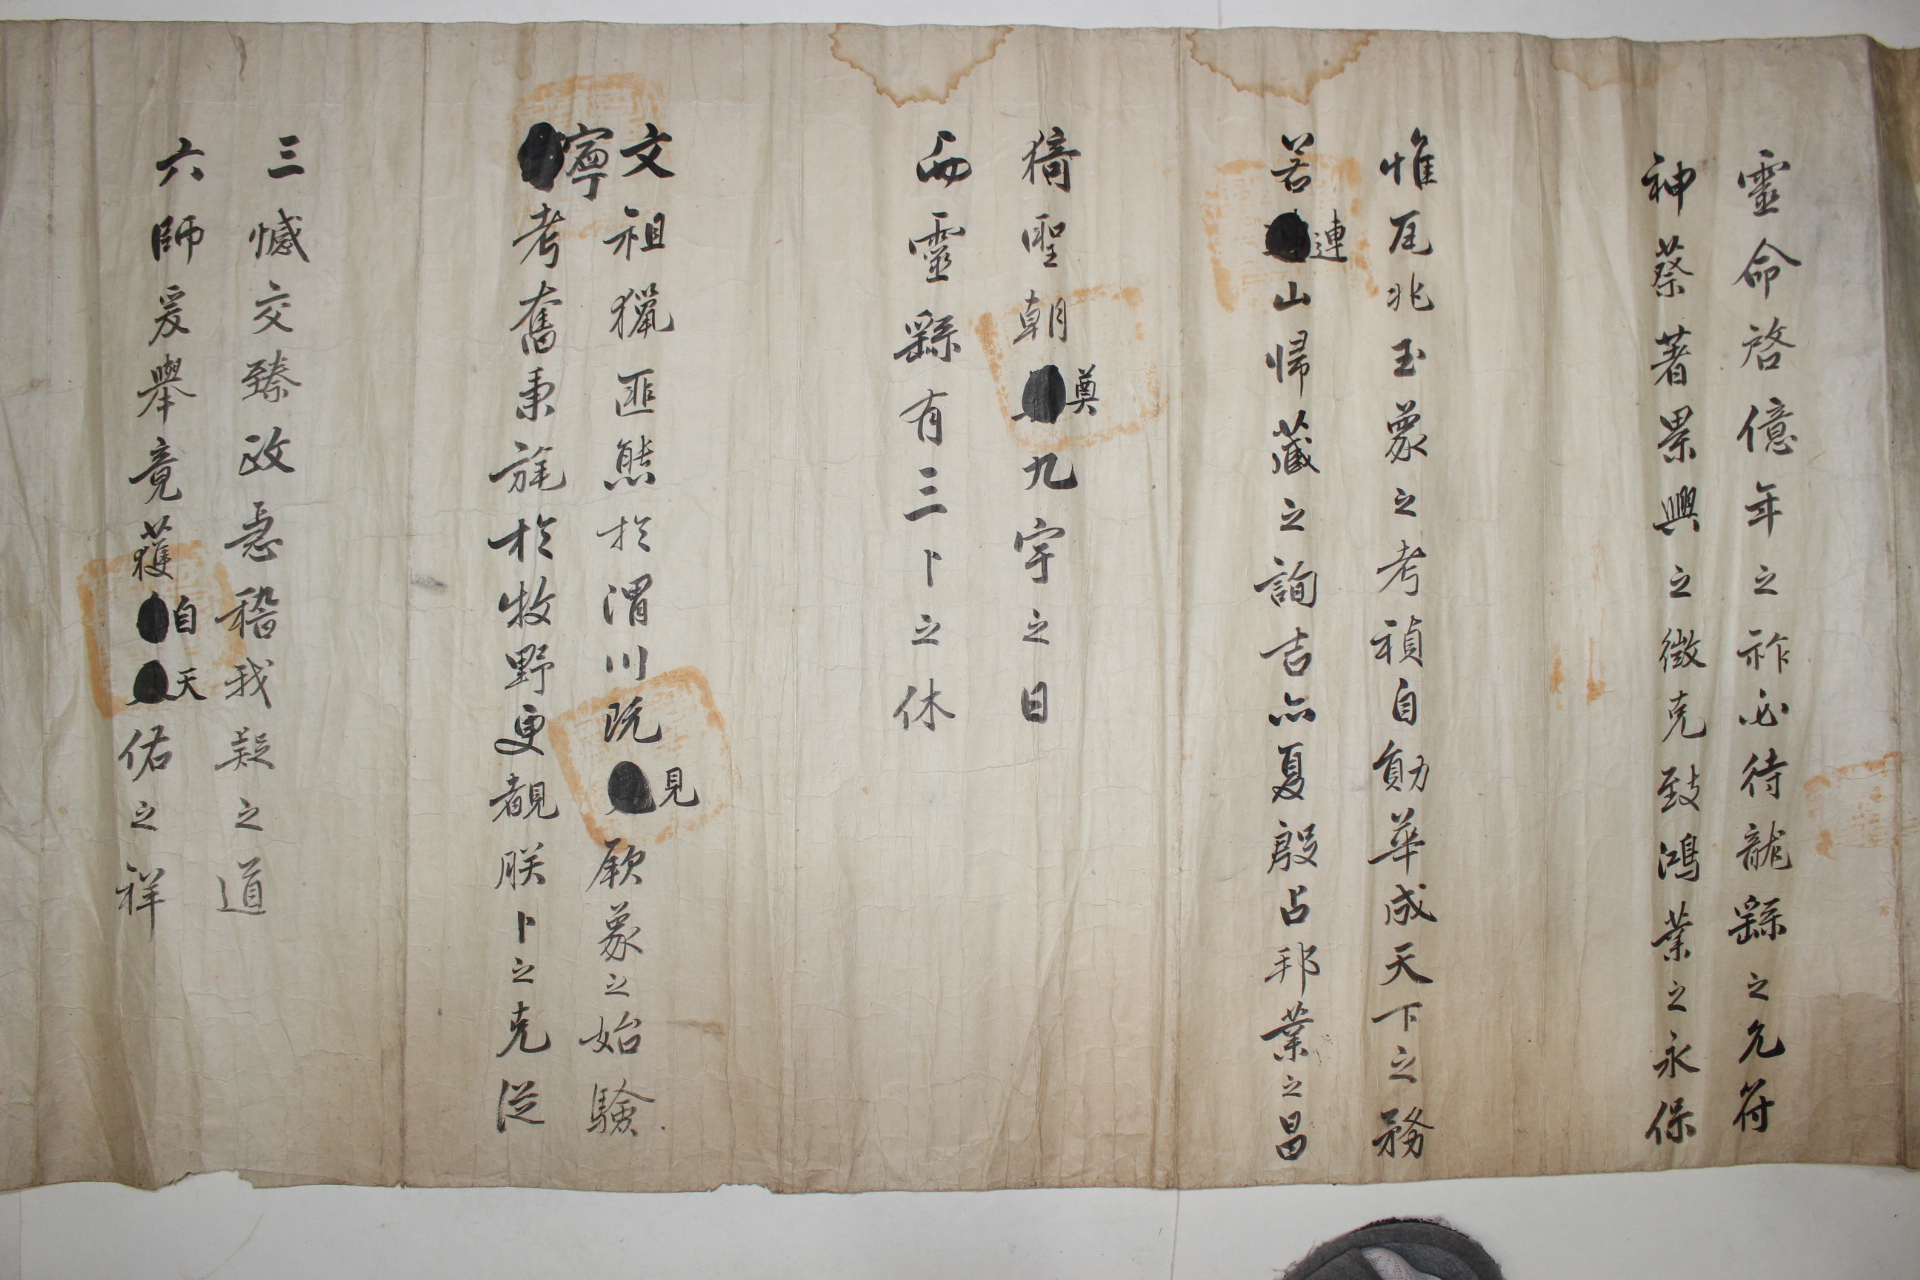 靈命啓億年之祚必待龍繇之允符
神蔡著累興之徵克致鴻業之永保
惟瓦兆玉象之考禎自勛華成天下之務
若連山歸藏之詢吉亦夏殷占邦業之昌
猗聖朝奠九宇之日
而靈繇有三卜之休
文祖獵匪熊於渭川旣見厥象之始驗
寧考奮秉旄於牧野更覩朕卜之克從
三憾交臻政急稽我疑之道
六師爰擧竟獲自天佑之祥